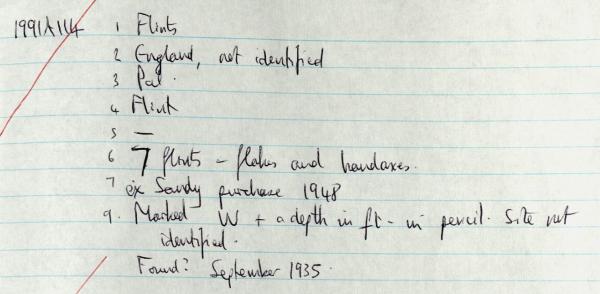 1991A114 1 Flints
2 England, not identified
3 Pal.
4 Flint
5 —
6 7 flints – flakes and handaxes.
7 ex Sandy purchase 1948
9. Marked W + a depth in ft – in pencil. Site not
identified.
Found? September 1935.